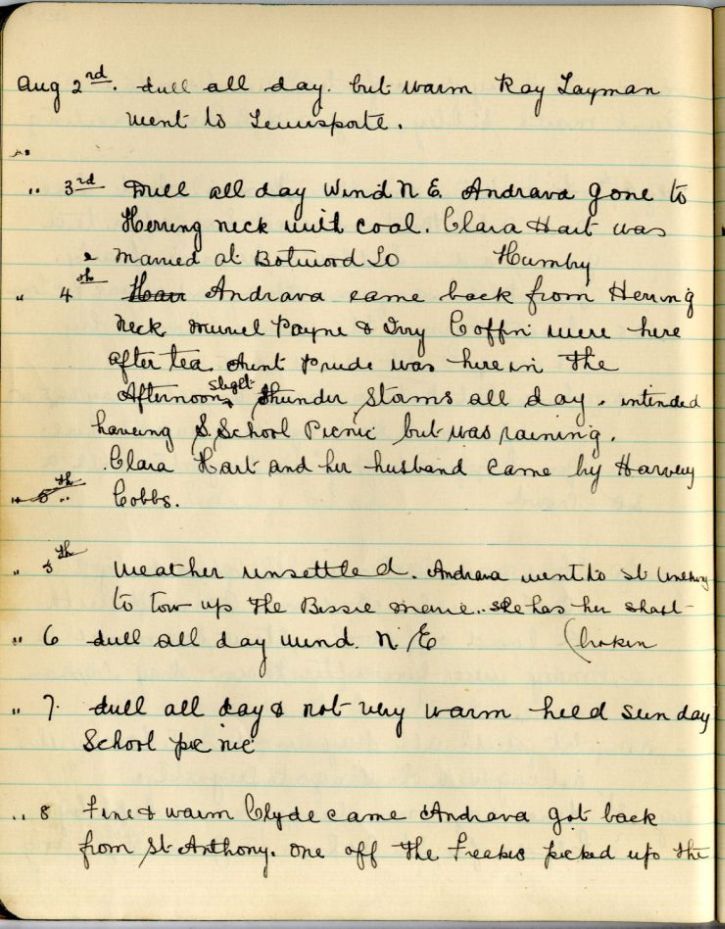 Aug 2nd. dull all day. but warm Ray Layman
went to Lewisporte.
" 3rd Dull all day Wind N E. Andrava gone to
Herring neck with coal. Clara Hart was
married at Botwood to Humby
" 4th Andrava came back from Herring
neck Muriel Payne & Ivy Coffin were here
after tea Aunt Prude was here in the
Afternoon, slight thunder storms all day. intended
haveing S. School Picnic but was raining.
Clara Hart and her husband came by Harvey
" 5th " Cobbs.
" 5th Weather unsettled. Andrava went to St Anthony
to tow up the Bessie Marie.. she has her shaft
" 6 dull all day wind. N/E (broken
" 7. dull all day & not very warm held Sunday
School pic nic
" 8 Fine & warm Clyde came Andrava got back
from St Anthony. one off the picked up the